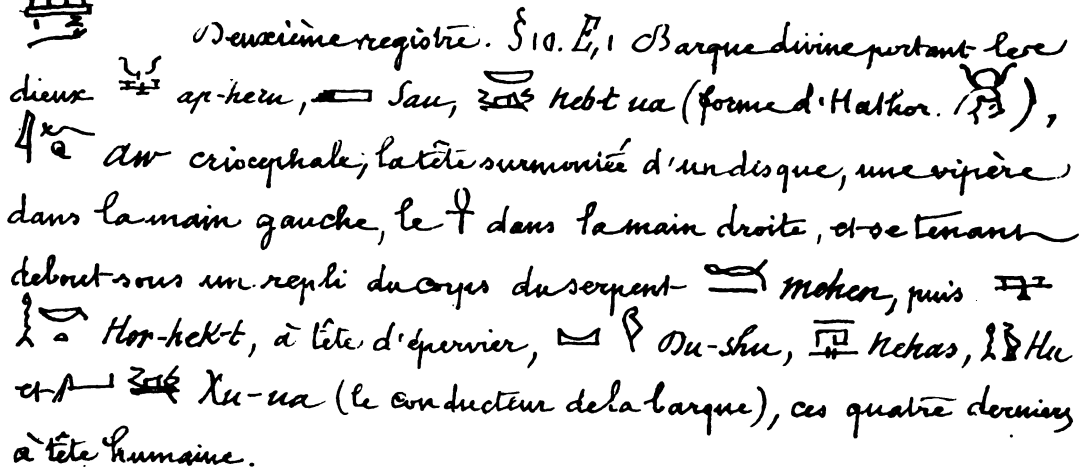 Deuxième registre. §10. E,1 Barque divine portant les
dieux ap-heru, Sau, nebt ua (forme d'Hathor. ),
aw criocephale; la tête surmontée d'un disque, une vipère
dans la main gauche, le ☥ dans la main droite, et se tenant
debout sous un repli du corps du serpent mehen, puis
Hor-hek-t, à tête d'épervier, Du-shu, nehas, Hu
et Xu-ua (le conducteur de la barque), ces quatre derniers
à tête humaine.